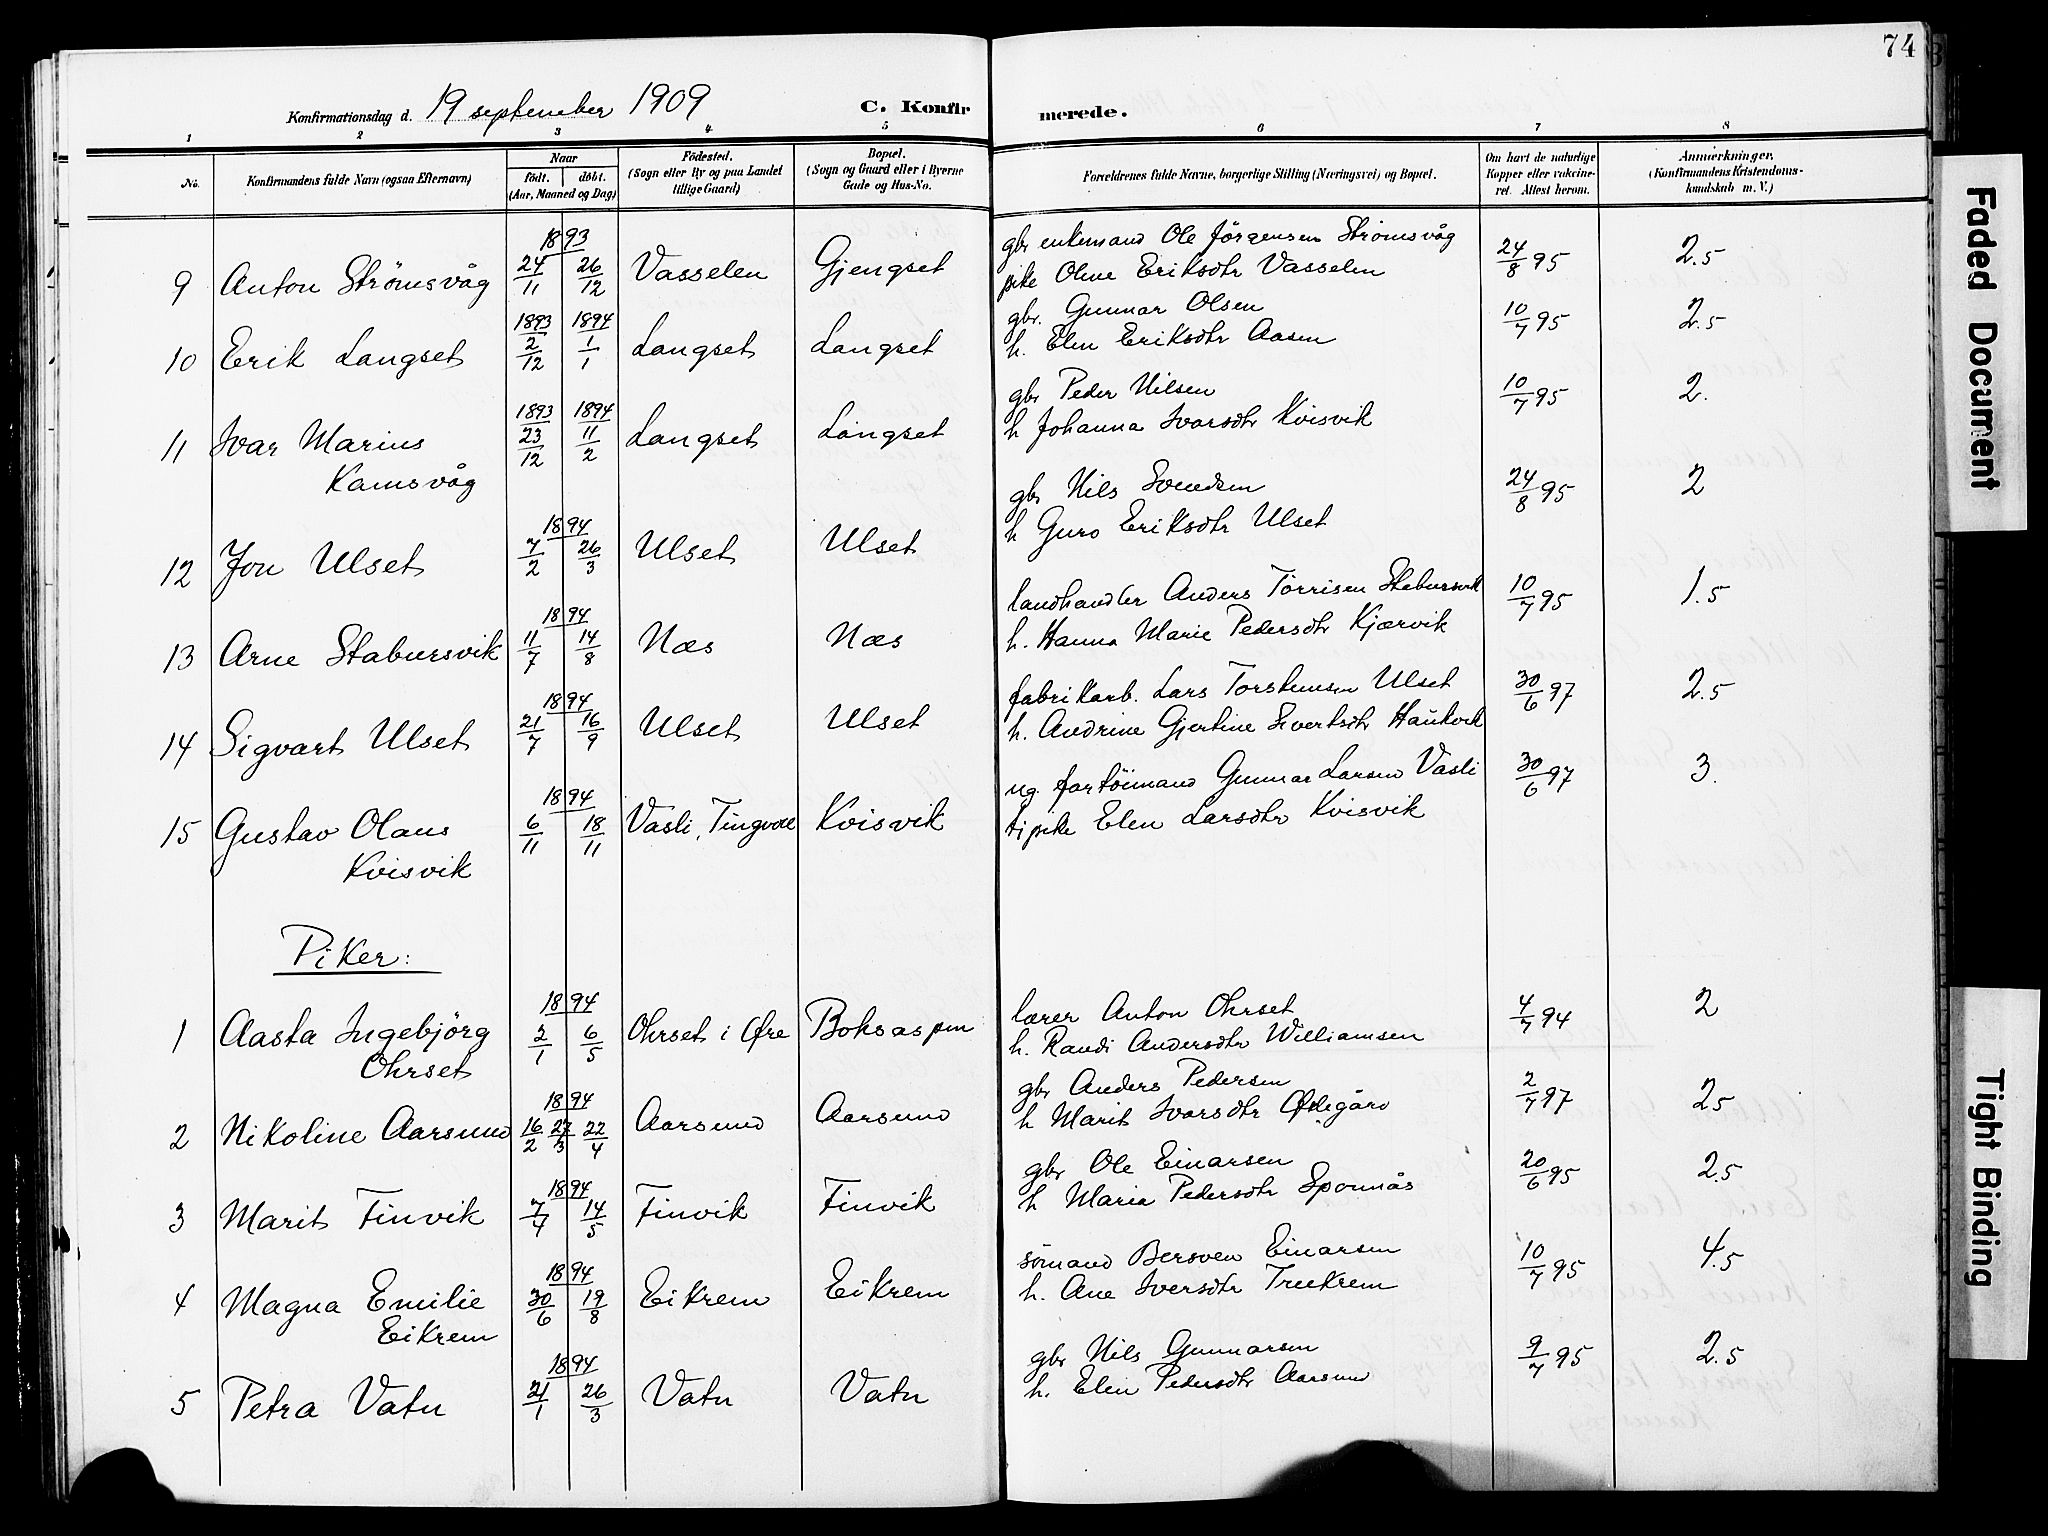 74
Konfirmationsdag d. 19 september 1909 C. Konfirmerede.
1 2 3 4 5 6 7 8
No. Konfirmandens fulde Navn (ogsaa Efternavn) Naar født. døbt. (Aar, Maaned og Dag) Fødested. (Sogn eller By og paa Landet tillige Gaard) Bopæl. (Sogn og Gaard eller i Byerne Gade og Hus-No. Forældrenes fulde Navne, borgerlige Stilling (Næringsvei) og Bopæl. Om havt de naturlige Kopper eller vakcineret. Attest herom. Anmærkninger. (Konfirmandens Kristendomskundskab m. V.)
9 Anton Strømsvåg 1893 24/11 26/12 Vasselen Gjengset gbr enkemand Ole Jörgensen Strömsvåg 24/8 95 2.5
pike Oline Eriksdtr Vasselen
10 Erik Langset 1893 2/12 1894 1/1 Langset Langset gbr. Gunnar Olsen 10/7 95 2.5
h. Elen Eriksdtr Aasen
11 Ivar Marius 1893 23/12 1894 11/2 Langset Langset gbr Peder Nilsen 10/7 95 2.
Kamsvåg h Johanna Ivarsdtr Kvisvik
12 Jon Ulset 1894 7/2 26/3 Ulset Ulset gbr Nils Svendsen 24/8 95 2
h Guro Eriksdtr Ulset
13 Arne Stabursvik 1894 11/7 14/8 Næs Næs landhandler Anders Torrisen Stabursvik 10/7 95 1.5
h. Hanna Marie Pedersdtr Kjærvik
14 Sigvart Ulset 1894 21/7 16/9 Ulset Ulset fabrikarb. Lars Torstensen Ulset 30/6 97 2.5
h. Andrine Gjertine Sivertsdtr
15 Gustav Olaus 1894 6/11 18/11 Vasli, Tingvoll Kvisvik ug. fartöimand Gunnar Larsen Vasli 30/6 97 3.
Kvisvik pike Elen Larsdtr Kvisvik
Piker:
1 Aasta Ingebjörg 1894 2/1 6/5 Ohrset i Øre Boksaspen lærer Anton Ohrset 4/7 94 2
Ohrset h. Randi Andersdtr Williamsen
2 Nikoline Aarsund 1894 16/2 27/3 22/4 Aarsund Aarsund gbr Anders Pedersen 2/7 97 2.5
h Marit Ivarsdtr Ødegård
3 Marit Finvik 1894 7/4 14/5 Finvik Finvik gbr Ole Einarsen 20/6 95 2.5
h Maria Pedersdtr Sponnås
4 Magna Emilie 1894 30/6 19/8 Eikrem Eikrem sömand Bersven Einarsen 10/7 95 4.5
Eikrem h. Ane Iversdtr Treekrem
5 Petra Vatn 1894 21/1 26/3 Vatn Vatn gbr Nils Gunnarsen 9/7 95 2.5
h. Elen Pedersdtr Aarsund
Faded Document
Tight Binding